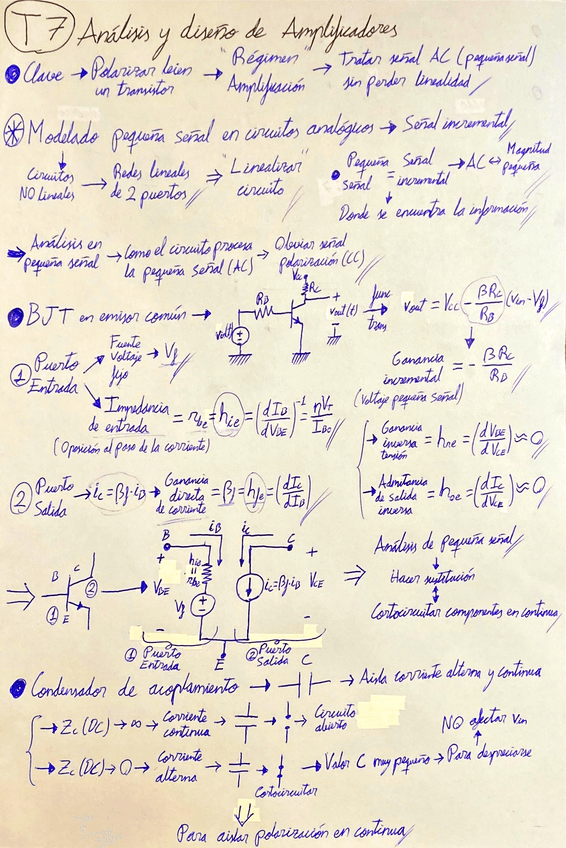 T7 Análisis y diseño de Amplificadores
Clave → Polarizar bien un transistor → "Régimen" Amplificación → Tratar señal AC (pequeña señal) sin perder linealidad
* Modelado pequeña señal en circuitos analógicos → Señal incremental
Circuitos NO lineales → Redes lineales de 2 puertos ⇒ "Linealizar" circuito
Pequeña Señal = Señal incremental → AC ↔ Magnitud pequeña
Donde se encuentra la información
→ Análisis en pequeña señal → Como el circuito procesa la pequeña señal (AC) → Obviar señal polarización (CC)
BJT en emisor común →
Vcc
Rc
RB
vout(t)
+
-
func trans
vout = Vcc - βRc/RB (vin - Vγ)
Ganancia incremental = - βRc/RB
(Voltaje pequeña señal)
① Puerto Entrada
Fuente Voltaje fijo → Vγ
Impedancia de entrada = rbe = hie = (dIB/dVBE)⁻¹ = ηVT/IBQ
(Oposición al paso de la corriente)
→ Ganancia inversa tensión = hre = (dVBE/dVCE) ≈ 0
→ Admitancia de Salida inversa = hoe = (dIc/dVCE) ≈ 0
② Puerto Salida → ic = βf·iB → Ganancia directa de corriente = βf = hfe = (dIc/dIB)
⇒ B C E ① ②
B iB ic C
+ +
hie
=
rbe
VBE
Vγ
ic = βf·iB
VCE
- -
① Puerto Entrada
E
② Puerto Salida
⇒ Análisis de pequeña señal
Hacer sustitución
Cortocircuitar componentes en continua
Condensador de acoplamiento → C → Aisla corriente alterna y continua
→ Zc (DC) → ∞ → Corriente continua → → Circuito abierto
→ Zc (DC) → 0 → Corriente alterna → → Valor C muy pequeño → Para despreciarse
NO afectar Vin
Cortocircuitar
Para aislar polarización en continua